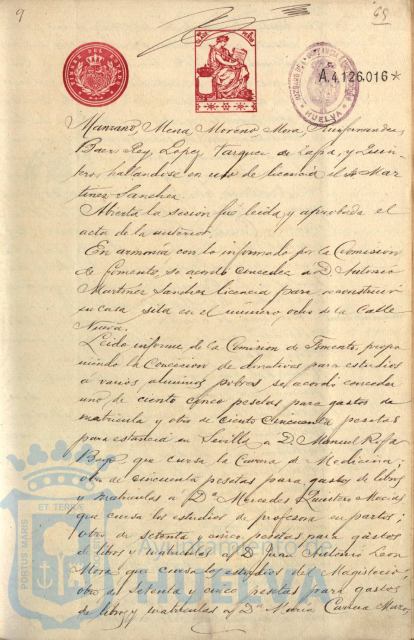 9
65
TIMBRE DEL ESTADO
A.4.126.016*
HUELVA
Manzano, Mena, Moreno, Mora,
Baer, Rey, Lopez, Vazquez de Zapa, y Quin-
tero, hallandose en uso de licencia el Sr. Mar-
tinez Sanchez
Abierta la sesion fué leida y aprobada el
acta de la anterior.
En armonia con lo informado por la Comision
de Fomento se acordó conceder a D. Antonio
Martinez Sanchez licencia para reconstruir
su casa sita en el número ocho de la Calle
Nueva.
Leido informe de la Comision de Fomento, propo
niendo la Concesion de donativos para estudios
á varios alumnos pobres se acordó conceder
uno de ciento cinco pesetas para gastos de
matricula y otro de ciento cincuenta pesetas
para estancia en Sevilla a D. Manuel Rofa
que cursa la Carrera de Medicina;
otro de cincuenta pesetas para gastos de libros
y matriculas a Dª Mercedes Quintero Macias
que cursa los estudios de profesora en partos;
otro de setenta y cinco pesetas para gastos
de libros y matriculas a D. Juan Antonio Leon
Mora que cursa los estudios del Magisterio;
otro de setenta y cinco pesetas para gastos
de libros y matriculas a Dª Maria Carrera
PORTUS MARIS
ET TERRAE
Ayuntamiento de
HUELVA